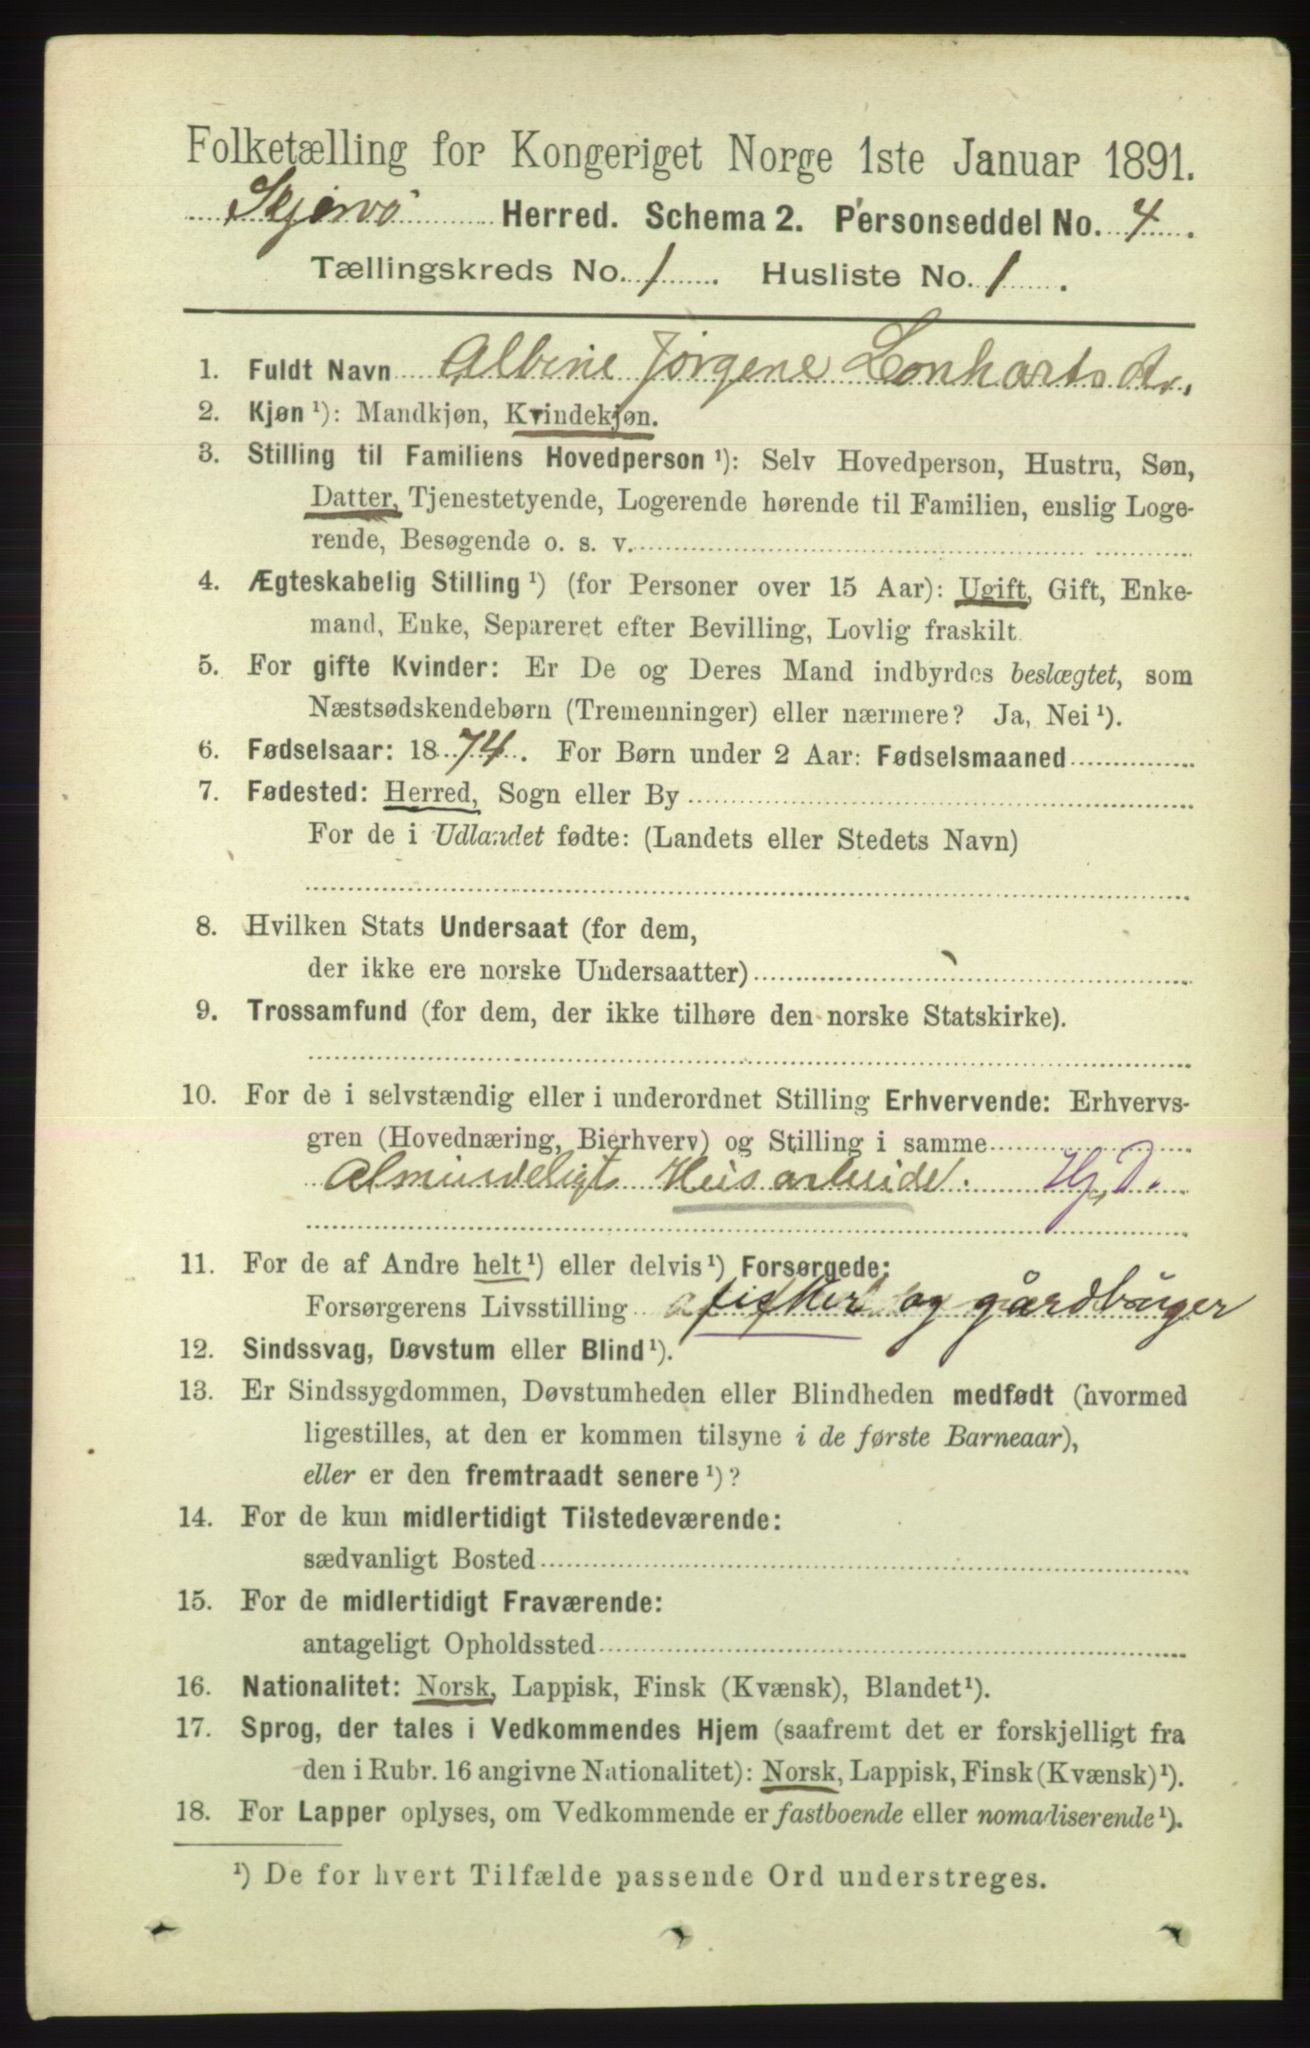 Folketælling for Kongeriget Norge 1ste Januar 1891.
Skjervø Herred. Schema 2. Personseddel No. 4.
Tællingskreds No. 1. Husliste No. 1.
1. Fuldt Navn Albine Jørgene Lonhartsdtr.
2. Kjøn ¹): Mandkjøn, Kvindekjøn.
3. Stilling til Familiens Hovedperson ¹): Selv Hovedperson, Hustru, Søn,
Datter, Tjenestetyende, Logerende hørende til Familien, enslig Loge-
rende, Besøgende o. s. v.
4. Ægteskabelig Stilling ¹) (for Personer over 15 Aar): Ugift, Gift, Enke-
mand, Enke, Separeret efter Bevilling, Lovlig fraskilt
5. For gifte Kvinder: Er De og Deres Mand indbyrdes beslægtet, som
Næstsødskendebørn (Tremenninger) eller nærmere? Ja, Nei ¹).
6. Fødselsaar: 1874. For Børn under 2 Aar: Fødselsmaaned
7. Fødested: Herred, Sogn eller By
For de i Udlandet fødte: (Landets eller Stedets Navn)
8. Hvilken Stats Undersaat (for dem,
der ikke ere norske Undersaatter)
9. Trossamfund (for dem, der ikke tilhøre den norske Statskirke).
10. For de i selvstændig eller i underordnet Stilling Erhvervende: Erhvervs-
gren (Hovednæring, Bierhverv) og Stilling i samme
Almindeligt Husarbeide. Hj. D.
11. For de af Andre helt ¹) eller delvis ¹) Forsørgede:
Forsørgerens Livsstilling fisker og gårdbruger
12. Sindssvag, Døvstum eller Blind ¹).
13. Er Sindssygdommen, Døvstumheden eller Blindheden medfødt (hvormed
ligestilles, at den er kommen tilsyne i de første Barneaar),
eller er den fremtraadt senere ¹)?
14. For de kun midlertidigt Tilstedeværende:
sædvanligt Bosted
15. For de midlertidigt Fraværende:
antageligt Opholdssted
16. Nationalitet: Norsk, Lappisk, Finsk (Kvænsk), Blandet ¹).
17. Sprog, der tales i Vedkommendes Hjem (saafremt det er forskjelligt fra
den i Rubr. 16 angivne Nationalitet): Norsk, Lappisk, Finsk (Kvænsk) ¹).
18. For Lapper oplyses, om Vedkommende er fastboende eller nomadiserende ¹).
¹) De for hvert Tilfælde passende Ord understreges.